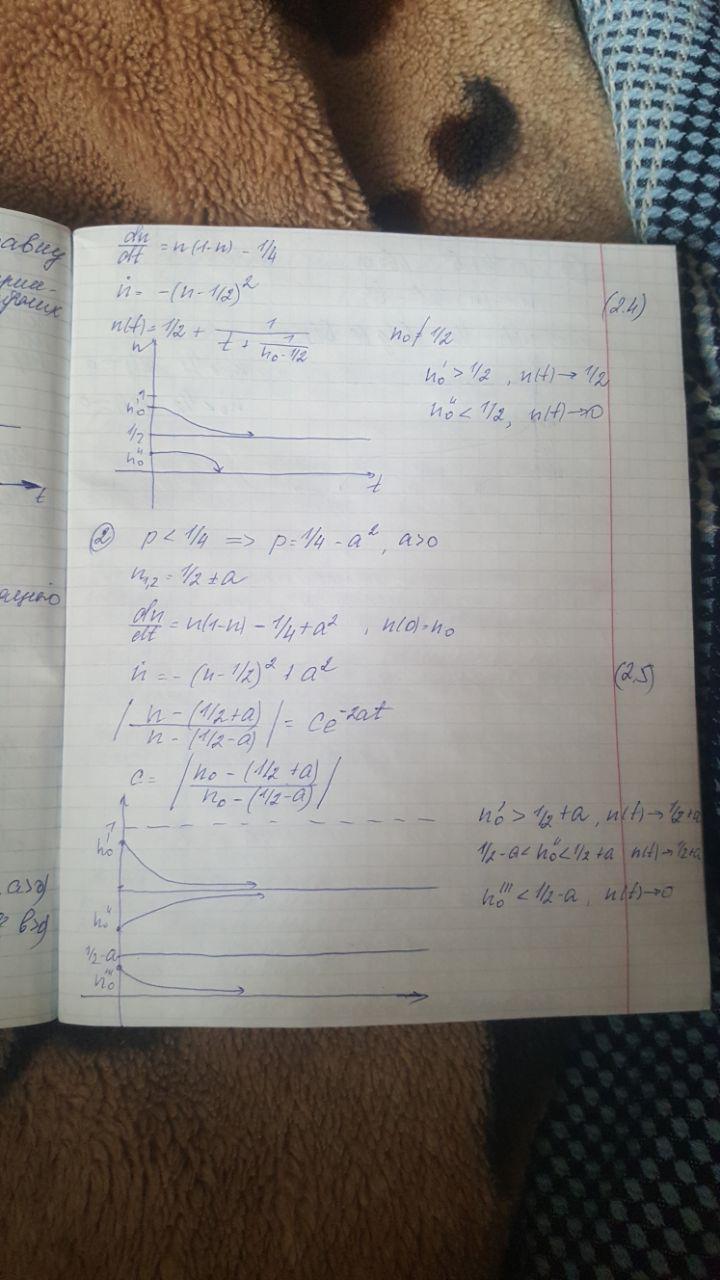 авиу
dn/dt = n(1-n) - 1/4
ṅ = -(n-1/2)²
(2.4)
n(t) = 1/2 + 1/(t + 1/(n₀-1/2))
n₀ ≠ 1/2
n₀' > 1/2, n(t) → 1/2
n₀'' < 1/2, n(t) → 0
n
1
n₀'
1/2
n₀''
t
t
② p < 1/4 => p = 1/4 - a², a>0
n₁,₂ = 1/2 ± a
dn/dt = n(1-n) - 1/4 + a², n(0) = n₀
ṅ = -(n-1/2)² + a²
(2.5)
|(n - (1/2+a))/(n - (1/2-a))| = Ce^(-2at)
C = |(n₀ - (1/2+a))/(n₀ - (1/2-a))|
n₀' > 1/2+a, n(t) → 1/2+a
1/2-a < n₀'' < 1/2+a n(t) → 1/2+a
n₀''' < 1/2-a, n(t) → 0
1
n₀'
n₀''
1/2-a
n₀'''